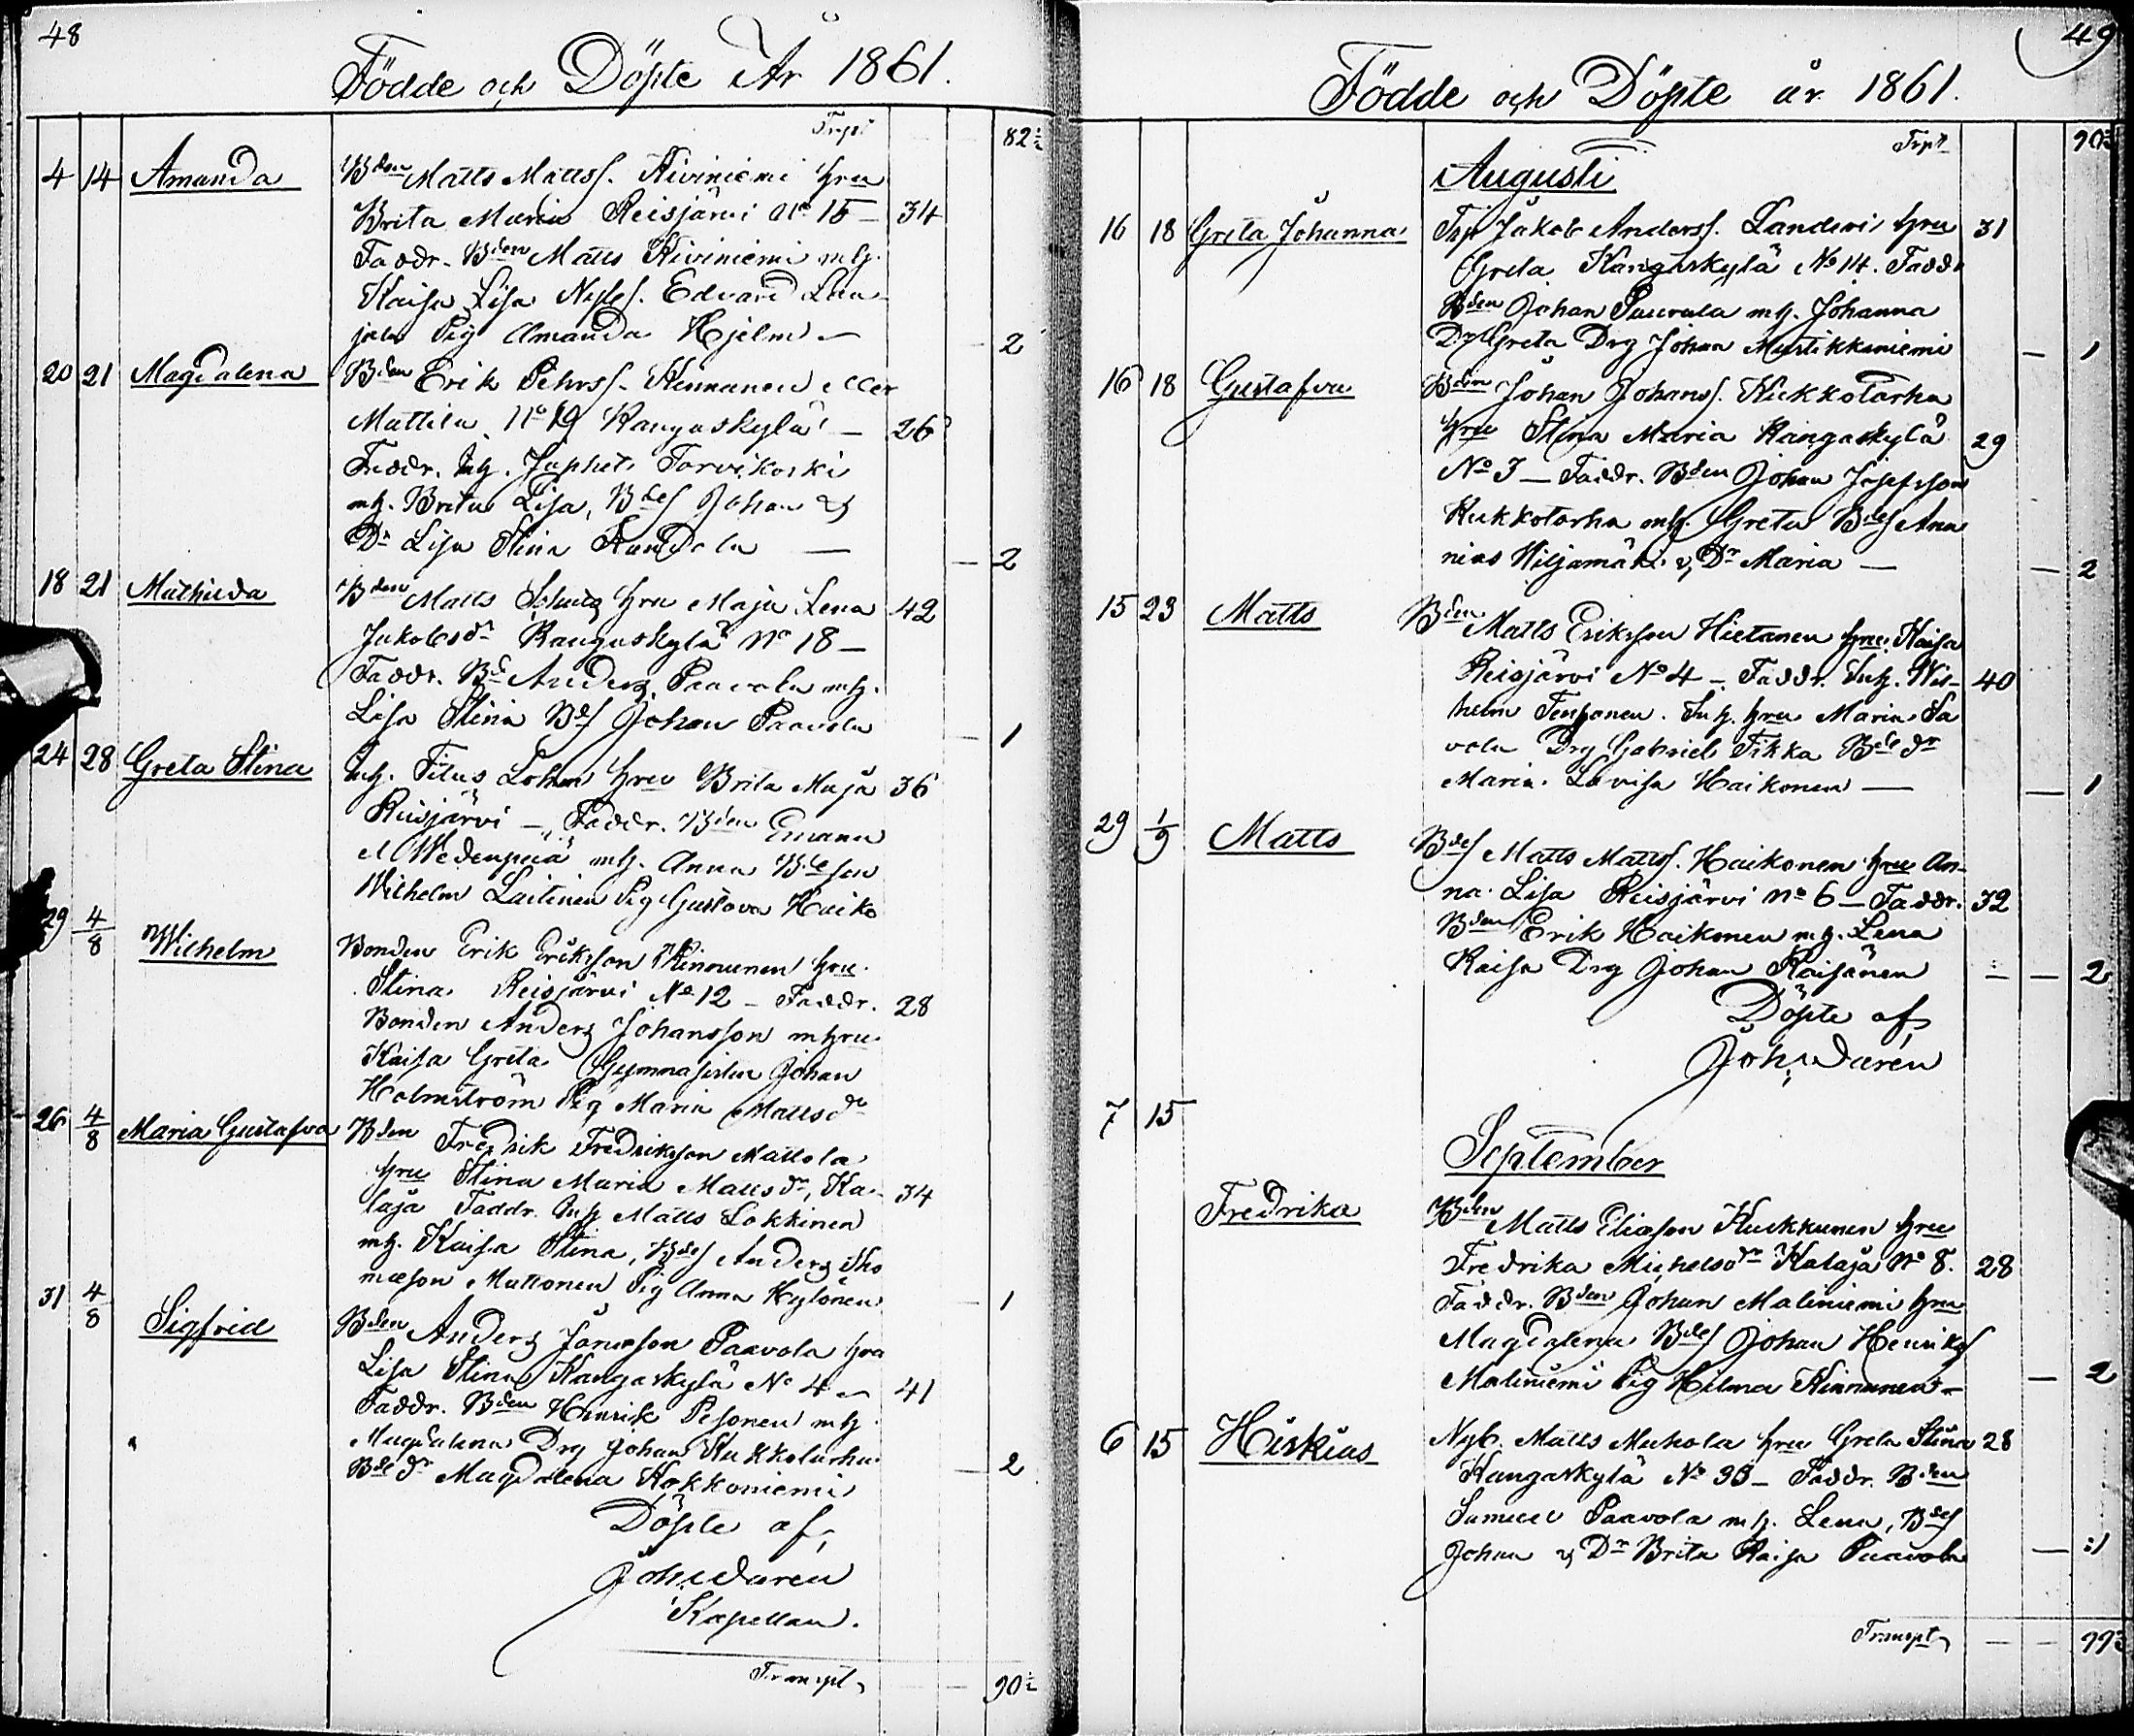 48
Födde och Döpte År 1861.
Trpt 82½
4 14 Amanda Bden Matts Mattss. Kiviniemi hru
Brita Maria Reisjärvi No 15 — 34
Faddr. Bden Matts Kiviniemi mh.
Kaisa Lisa Edvard Lau-
jala Pig Amanda Hjelm — 2
20 21 Magdalena Bden Erik Pehrss. Kinnunen eller
Mattila No 19 Kangaskylä — 26
Faddr. Inh. Japhet Torvikoski
mh. Brita Lisa, Bdes Johan &
Dr Lisa Stina — 2
18 21 Mathilda Bden Matts Schultz hru Maja Lena 42
Jakobsdr Kangaskylä No 18 —
Faddr. Bd Anders Paavola mh.
Lisa Stina Bds Johan Paavola — 1
24 28 Greta Stina Inh. Titus Lohm hru Brita Maja 36
Reisjärvi — Faddr. Bden Emanu
el Wedenpää mh. Anna Bdeson
Wilhelm Laitinen Pig Gustava Haiko
29 4/8 Wilhelm Bonden Erik Eriksson Kinnunen hru
Stina Reisjärvi No 12 — Faddr. 28
Bonden Anders Johansson m hru
Kaisa Greta Gymnasisten Johan
Holmström Pig Maria Mattsdr
26 4/8 Maria Gustafva Bden Fredrik Fredriksson Mattola
hru Stina Maria Mattsdr, Ka- 34
laja Faddr. Inh Matts Lokkinen
mh. Kaisa Stina, Bdes Anders Tho
masson Muttonen Pig Anna Hylönen — 1
31 4/8 Sigfrid Bden Anders Jönsson Paavola hru
Lisa Stina Kangaskylä No 4 — 41
Faddr. Bden Henrik Pesonen mh
Magdalena Drg Johan Kukkotarha
Bde dr Magdalena Kokkoniemi — 2
Döpte af,
Joh. Daren
Kapellan.
Transpt, — 90½
49
Födde och Döpte år 1861.
Trpt 90½
Augusti
16 18 Greta Johanna Jakob Anderss. Landvis hru 31
Greta Kangaskylä No 14. Faddr
Bden Johan Paavola mh. Johanna
Dr Greta Drg Johan Mustikkaniemi — 1
16 18 Gustafva Bden Johan Johanss. Kukkotarha
hru Stina Maria Kangaskylä 29
No 3 — Faddr. Bden Johan Josefsson
Kukkotarha mh. Greta Bdes Ana
nias Hiljamäki & Dr Maria — 2
15 23 Matts Bden Matts Eriksson Hietanen hru Kaisa
Reisjärvi No 4 — Faddr. Inh. Wil- 40
helm Tenhonen. Inh. hru Maria Sa
vola Drg Gabriel Tikka Bde dr
Maria Lovisa Haikonen — 1
29 1/9 Matts Bdes Matts Mattss. Haikonen hru An-
na Lisa Reisjärvi No 6 — Faddr. 32
Bden Erik Haikonen mh. Lena
Kaisa Drg Johan Räisänen — — 2
Döpte af,
Joh. Daren
7 15
September
Fredrika Bden Matts Eliasson Kukkunen hru
Fredrika Michelsdr Kalaja No 8. 28
Faddr. Bden Johan Maliniemi hru
Magdalena Bdes Johan Henrikss
Maliniemi Pig Hilma Kinnunen — 2
6 15 Hiskias Nyb. Matts Muhola hru Greta Stina 28
Kangaskylä No 35 — Faddr. Bden
Samuel Paavola mh. Lena, Bdes
Johan & Dr Brita Kaisa Paavola — 1
Transpt, — — 99½